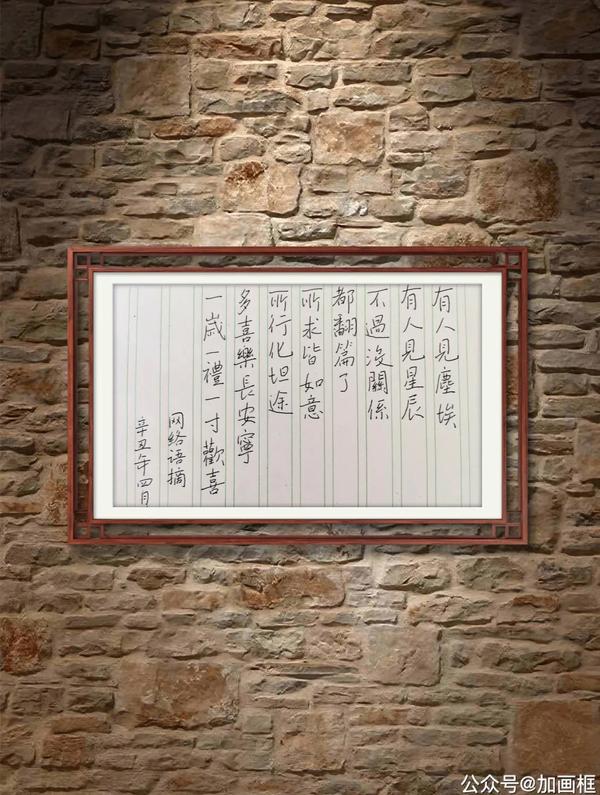 有人見塵埃
有人見星辰
不過沒關係
都翻篇了
所求皆如意
所行化坦途
多喜樂長安寧
一歲一禮一寸歡喜
网络语摘
辛丑年四月
公众号@加画框